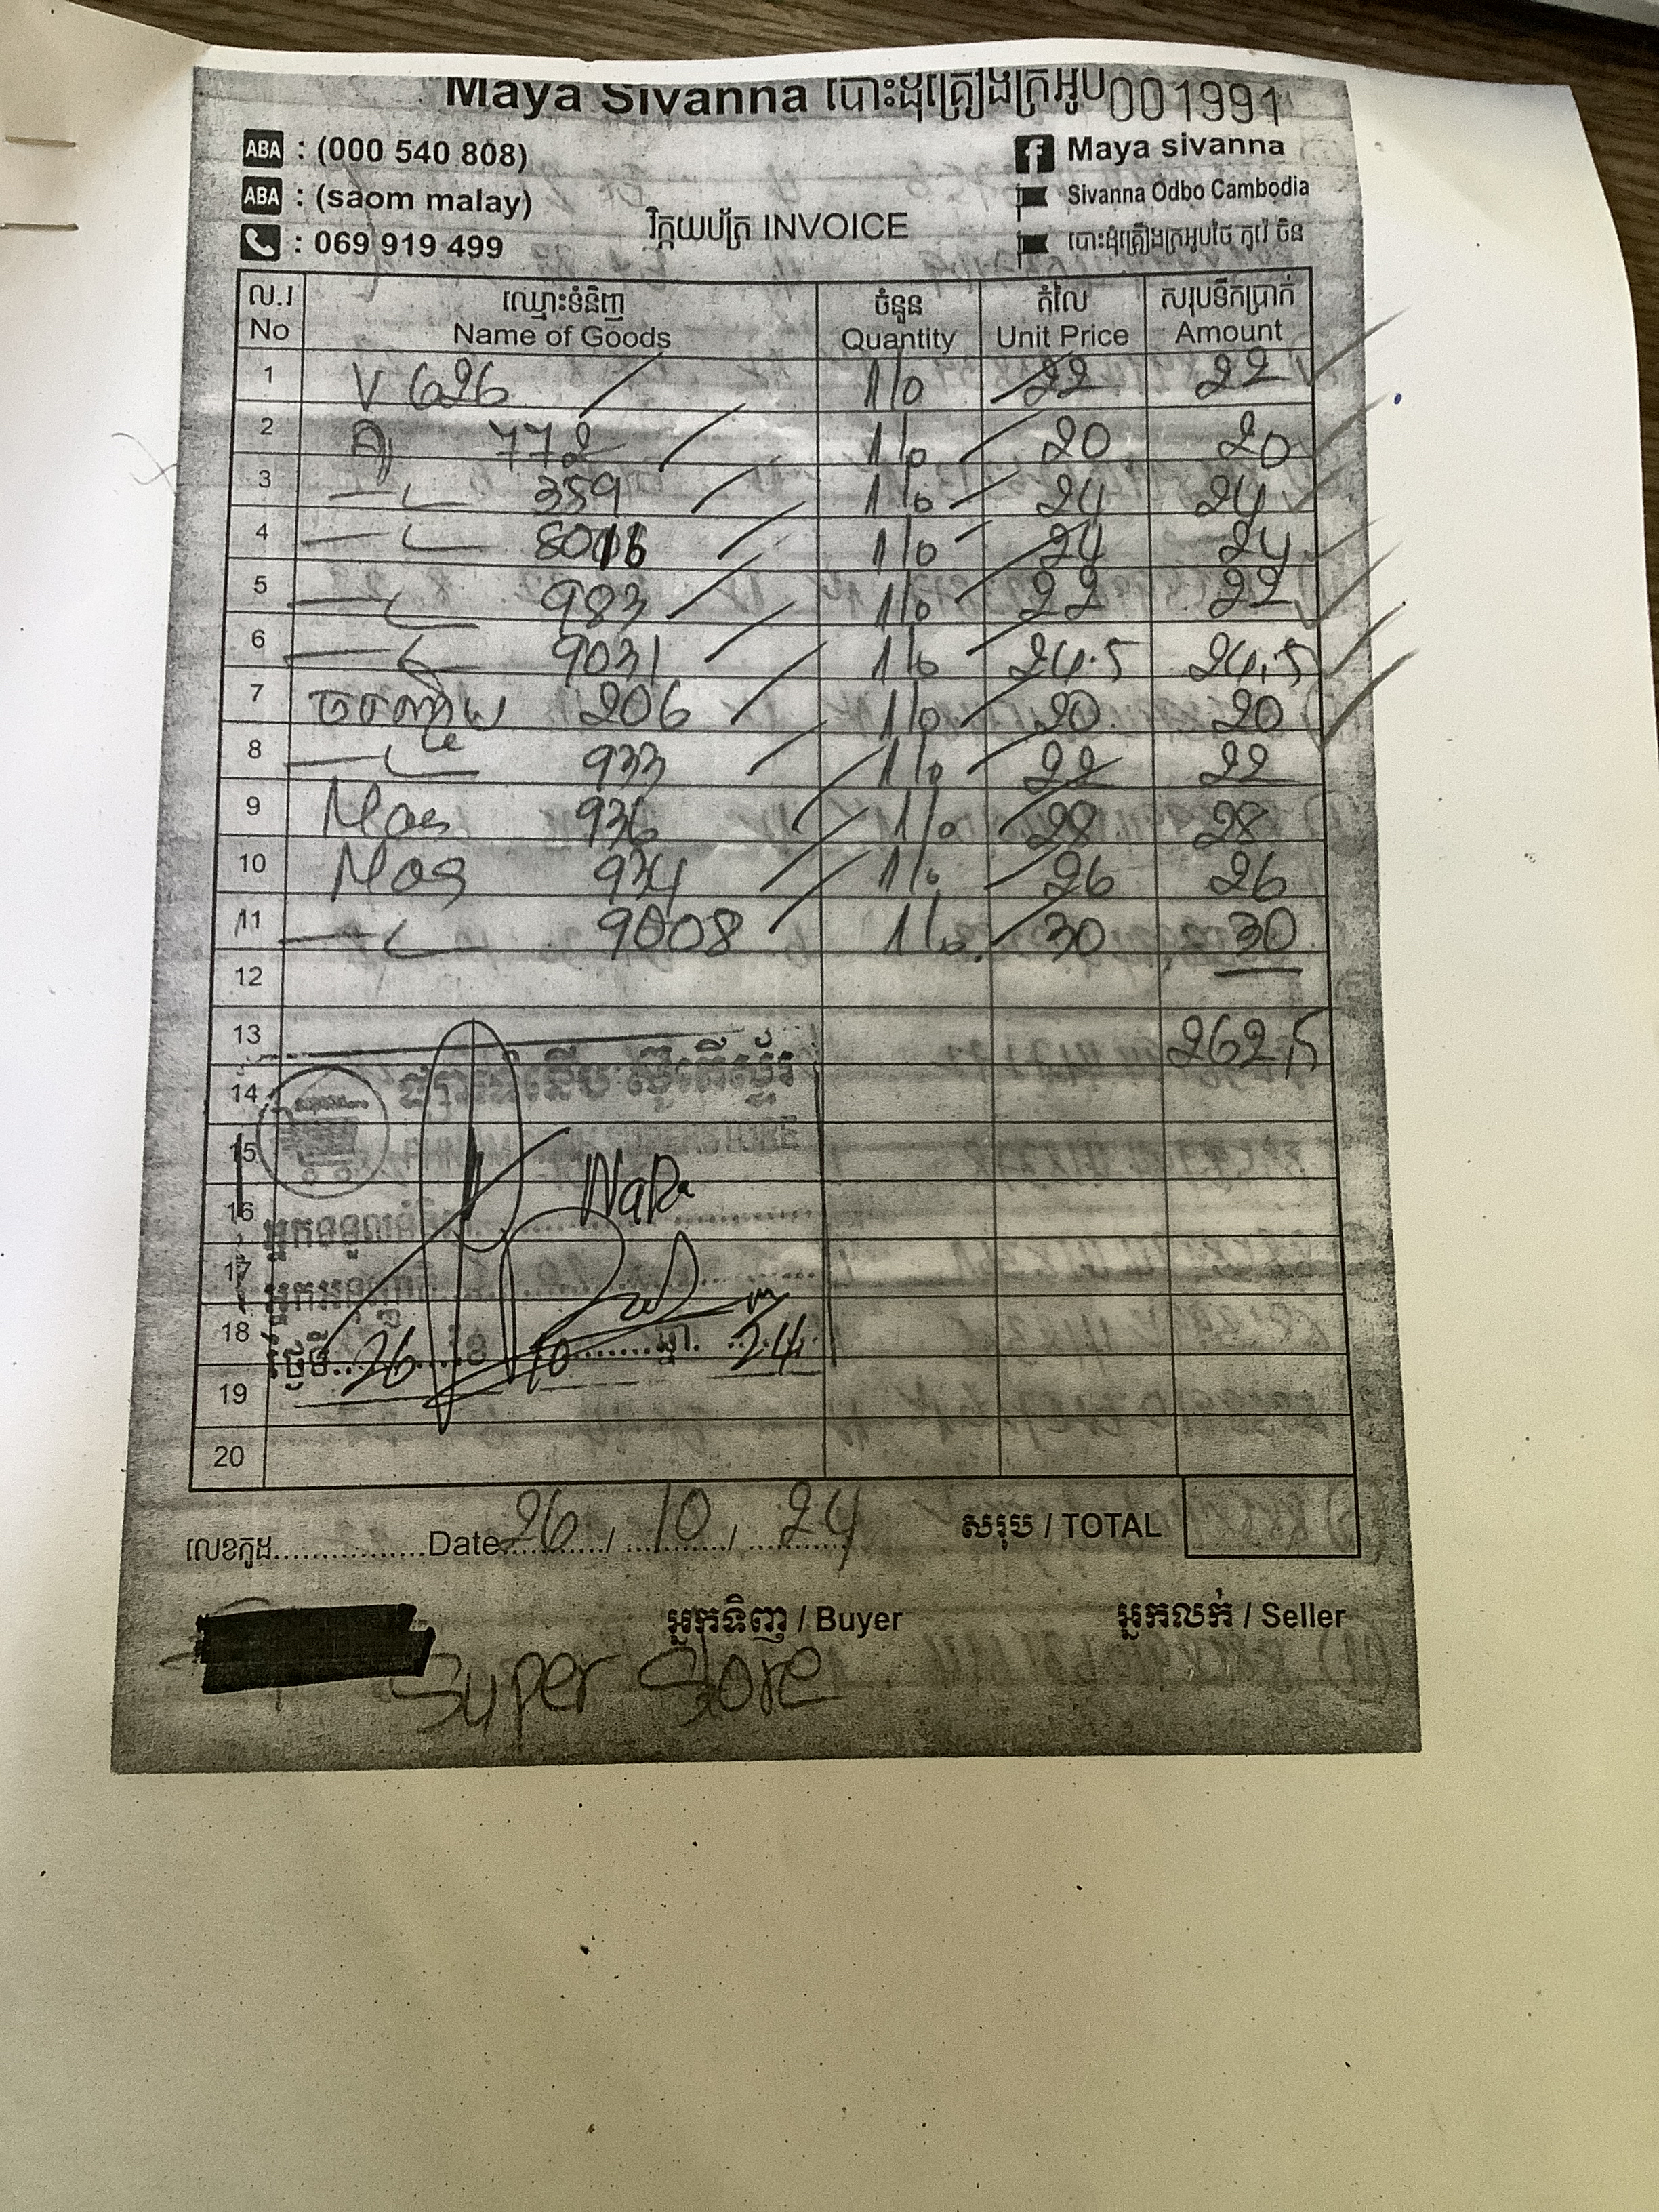 Maya Sivanna បោះដុំគ្រឿងក្រអូប 001991
ABA : (000 540 808)
Maya sivanna
ABA : (saom malay)
Sivanna Odbo Cambodia
: 069 919 499
វិក្កយប័ត្រ INVOICE
បោះដុំគ្រឿងក្រអូបថៃ កូរ៉េ ចិន
ល.រ ឈ្មោះទំនិញ ចំនួន តំលៃ សរុបទឹកប្រាក់
No Name of Goods Quantity Unit Price Amount
1 V 626 1/0 22 22
2 772 1/0 20 20
3 359 1/0 24 24
4 8016 1/0 24 24
5 983 1/0 22 22
6 9031 1/0 24.5 24,5
7 206 1/0 20 20
8 933 1/0 22 22
9 936 1/0 28 28
10 934 1/0 26 26
11 9008 1/0 30 30
12
13 262,5
14
15
16 NaRa
17
18 ថ្ងៃទី 26 ខែ 10 ឆ្នាំ 24
19
20
លេខកូដ Date 26 / 10 / 24 សរុប / TOTAL
អ្នកទិញ / Buyer អ្នកលក់ / Seller
Super Store